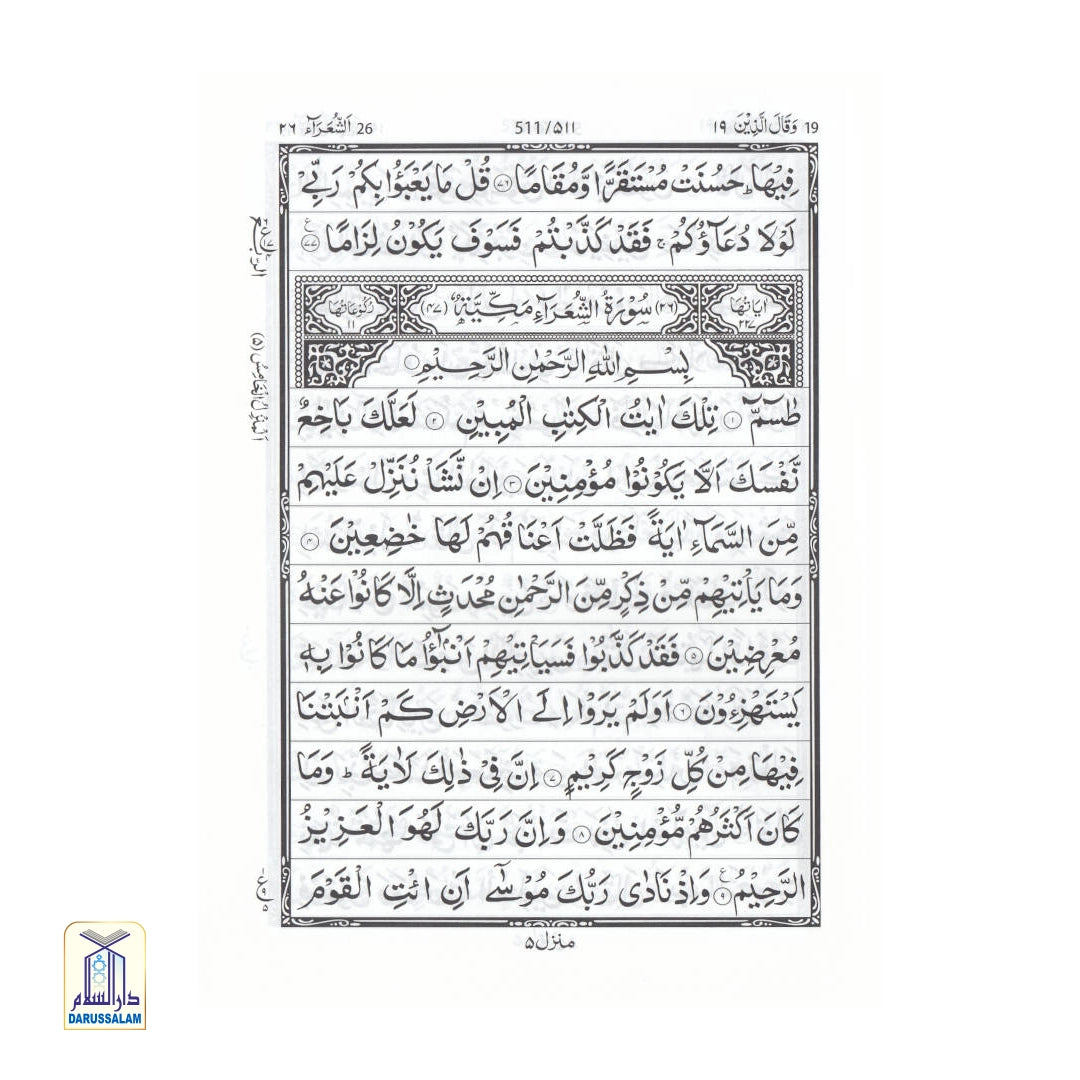 19 وَقَالَ الَّذِيْنَ ١٩
511/۵۱۱
26 اَلشُّعَرَآء ٢٦
فِيْهَا ؕ حَسُنَتْ مُسْتَقَرًّا وَّمُقَامًا ﴿۷۶﴾ قُلْ مَا يَعْبَؤُا بِكُمْ رَبِّيْ
لَوْلَا دُعَآؤُكُمْ ۚ فَقَدْ كَذَّبْتُمْ فَسَوْفَ يَكُوْنُ لِزَامًا ﴿۷۷﴾ ع
اٰيَاتُهَا ٢٢٧
(٢٦) سُوْرَةُ الشُّعَرَآءِ مَكِّيَّةٌ (٤٧)
رُكُوْعَاتُهَا ١١
بِسْمِ اللّٰهِ الرَّحْمٰنِ الرَّحِيْمِ
طٰسٓمّٓ ﴿۱﴾ تِلْكَ اٰيٰتُ الْكِتٰبِ الْمُبِيْنِ ﴿۲﴾ لَعَلَّكَ بَاخِعٌ
نَّفْسَكَ اَلَّا يَكُوْنُوْا مُؤْمِنِيْنَ ﴿۳﴾ اِنْ نَّشَاْ نُنَزِّلْ عَلَيْهِمْ
مِّنَ السَّمَآءِ اٰيَةً فَظَلَّتْ اَعْنَاقُهُمْ لَهَا خٰضِعِيْنَ ﴿۴﴾
وَمَا يَاْتِيْهِمْ مِّنْ ذِكْرٍ مِّنَ الرَّحْمٰنِ مُحْدَثٍ اِلَّا كَانُوْا عَنْهُ
مُعْرِضِيْنَ ﴿۵﴾ فَقَدْ كَذَّبُوْا فَسَيَاْتِيْهِمْ اَنْۢبٰٓؤُا مَا كَانُوْا بِهٖ
يَسْتَهْزِءُوْنَ ﴿۶﴾ اَوَلَمْ يَرَوْا اِلَى الْاَرْضِ كَمْ اَنْۢبَتْنَا
فِيْهَا مِنْ كُلِّ زَوْجٍ كَرِيْمٍ ﴿۷﴾ اِنَّ فِيْ ذٰلِكَ لَاٰيَةً ؕ وَمَا
كَانَ اَكْثَرُهُمْ مُّؤْمِنِيْنَ ﴿۸﴾ وَاِنَّ رَبَّكَ لَهُوَ الْعَزِيْزُ
الرَّحِيْمُ ﴿۹﴾ ع وَاِذْ نَادٰى رَبُّكَ مُوْسٰٓى اَنِ ائْتِ الْقَوْمَ
اَلْمَنْزِلُ الْخَامِسُ (۵)
منزل ۵
دارالسلام
DARUSSALAM